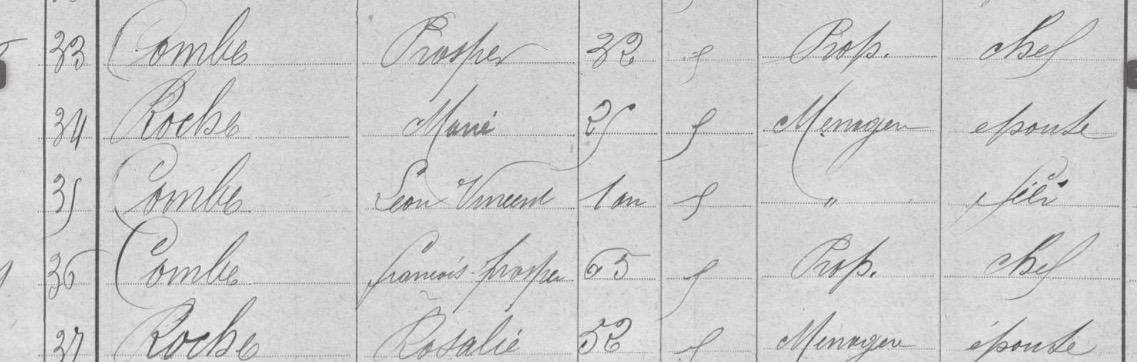 33 Combe Prosper 32 f Prop. chef
34 Roche Marie 25 f Ménagère épouse
35 Combe Léon Vincent 1 an f " fils
36 Combe François-prosper 65 f Prop. chef
37 Roche Rosalie 52 f Ménagère épouse